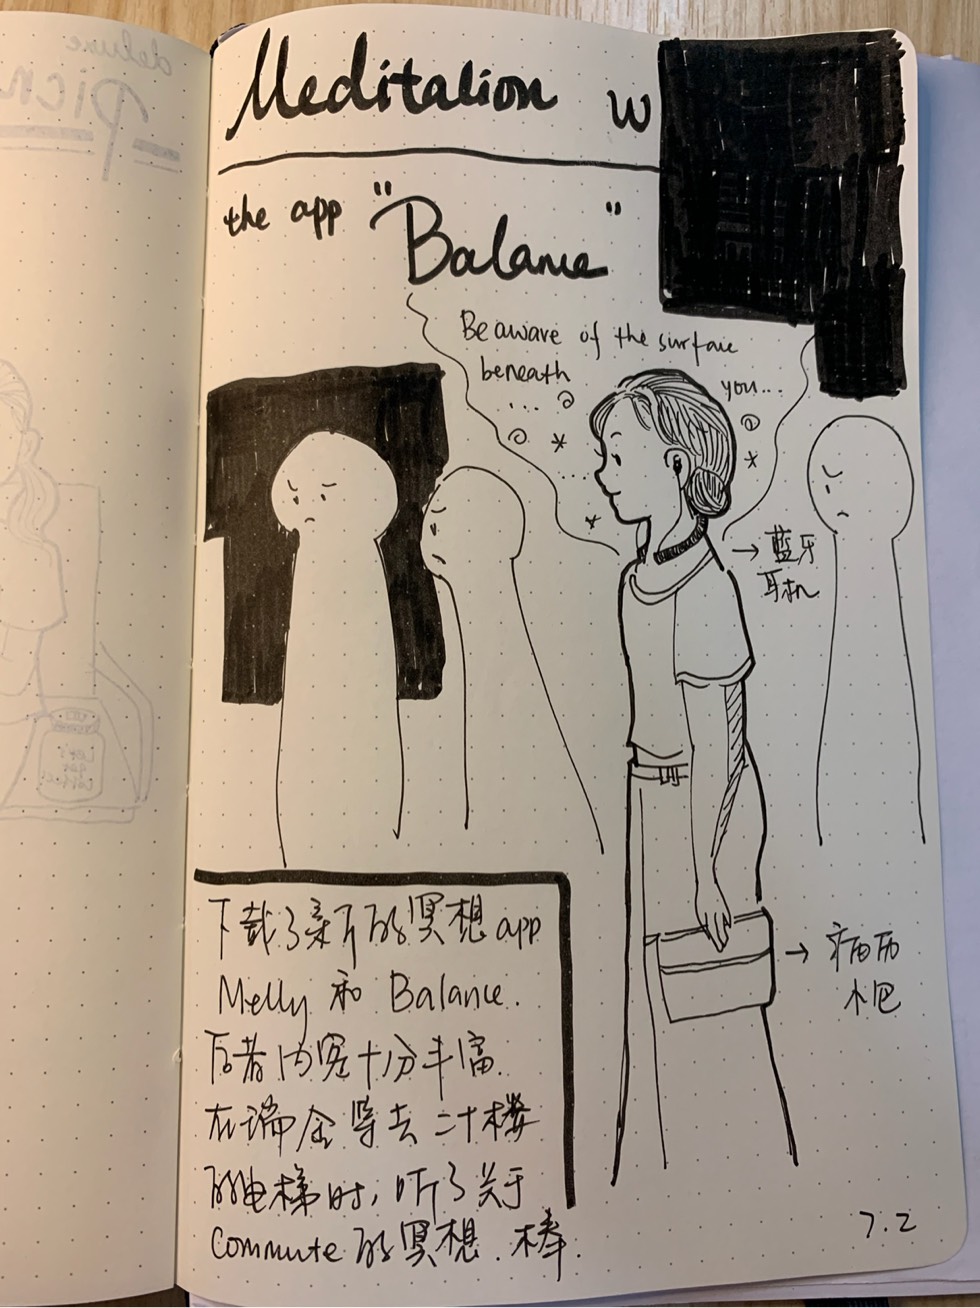 Meditation w
the app "Balance"
Be aware of the surface
beneath you...
→ 蓝牙
耳机
→ 病历
小包
下载了新的冥想app
Melly 和 Balance.
后者内容十分丰富.
在瑞金等去二十楼
的电梯时,听了关于
Commute的冥想.棒.
7.2
deluxe
Picn